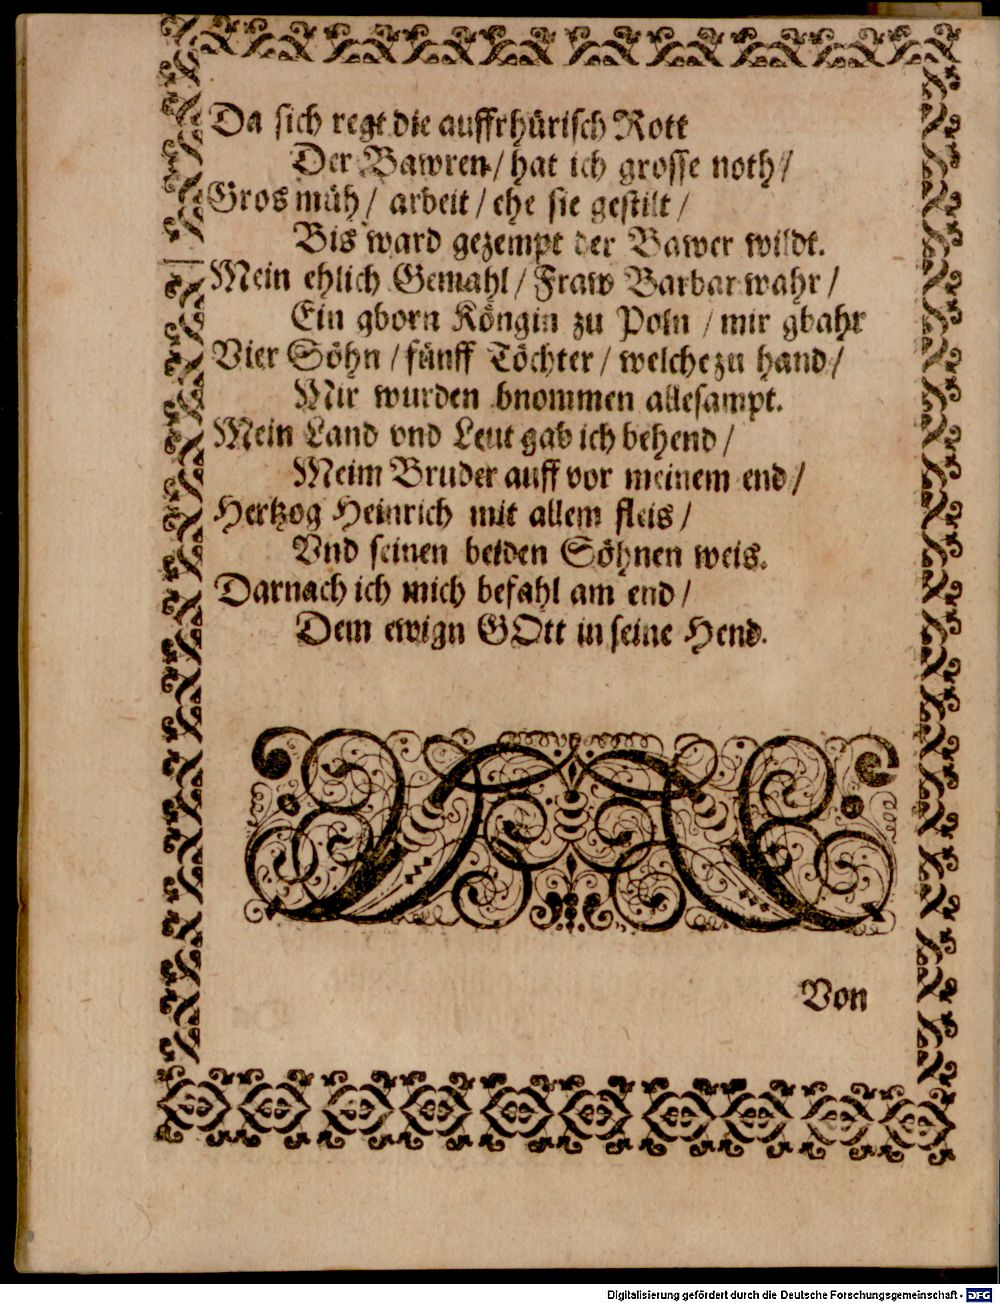 Da sich regt die auffrhürisch Rott
Der Bawren / hat ich grosse noth /
Gros müh / arbeit / ehe sie gestilt /
Bis ward gezempt der Bawer wildt.
Mein ehlich Gemahl / Fraw Barbar wahr /
Ein gborn Köngin zu Poln / mir gbahr
Vier Söhn / fünff Töchter / welche zu hand /
Mir wurden bnommen allesampt.
Mein Land vnd Leut gab ich behend /
Meim Bruder auff vor meinem end /
Hertzog Heinrich mit allem fleis /
Vnd seinen beiden Söhnen weis.
Darnach ich mich befahl am end /
Dem ewign GOtt in seine Hend.
Von
Digitalisierung gefördert durch die Deutsche Forschungsgemeinschaft - DFG